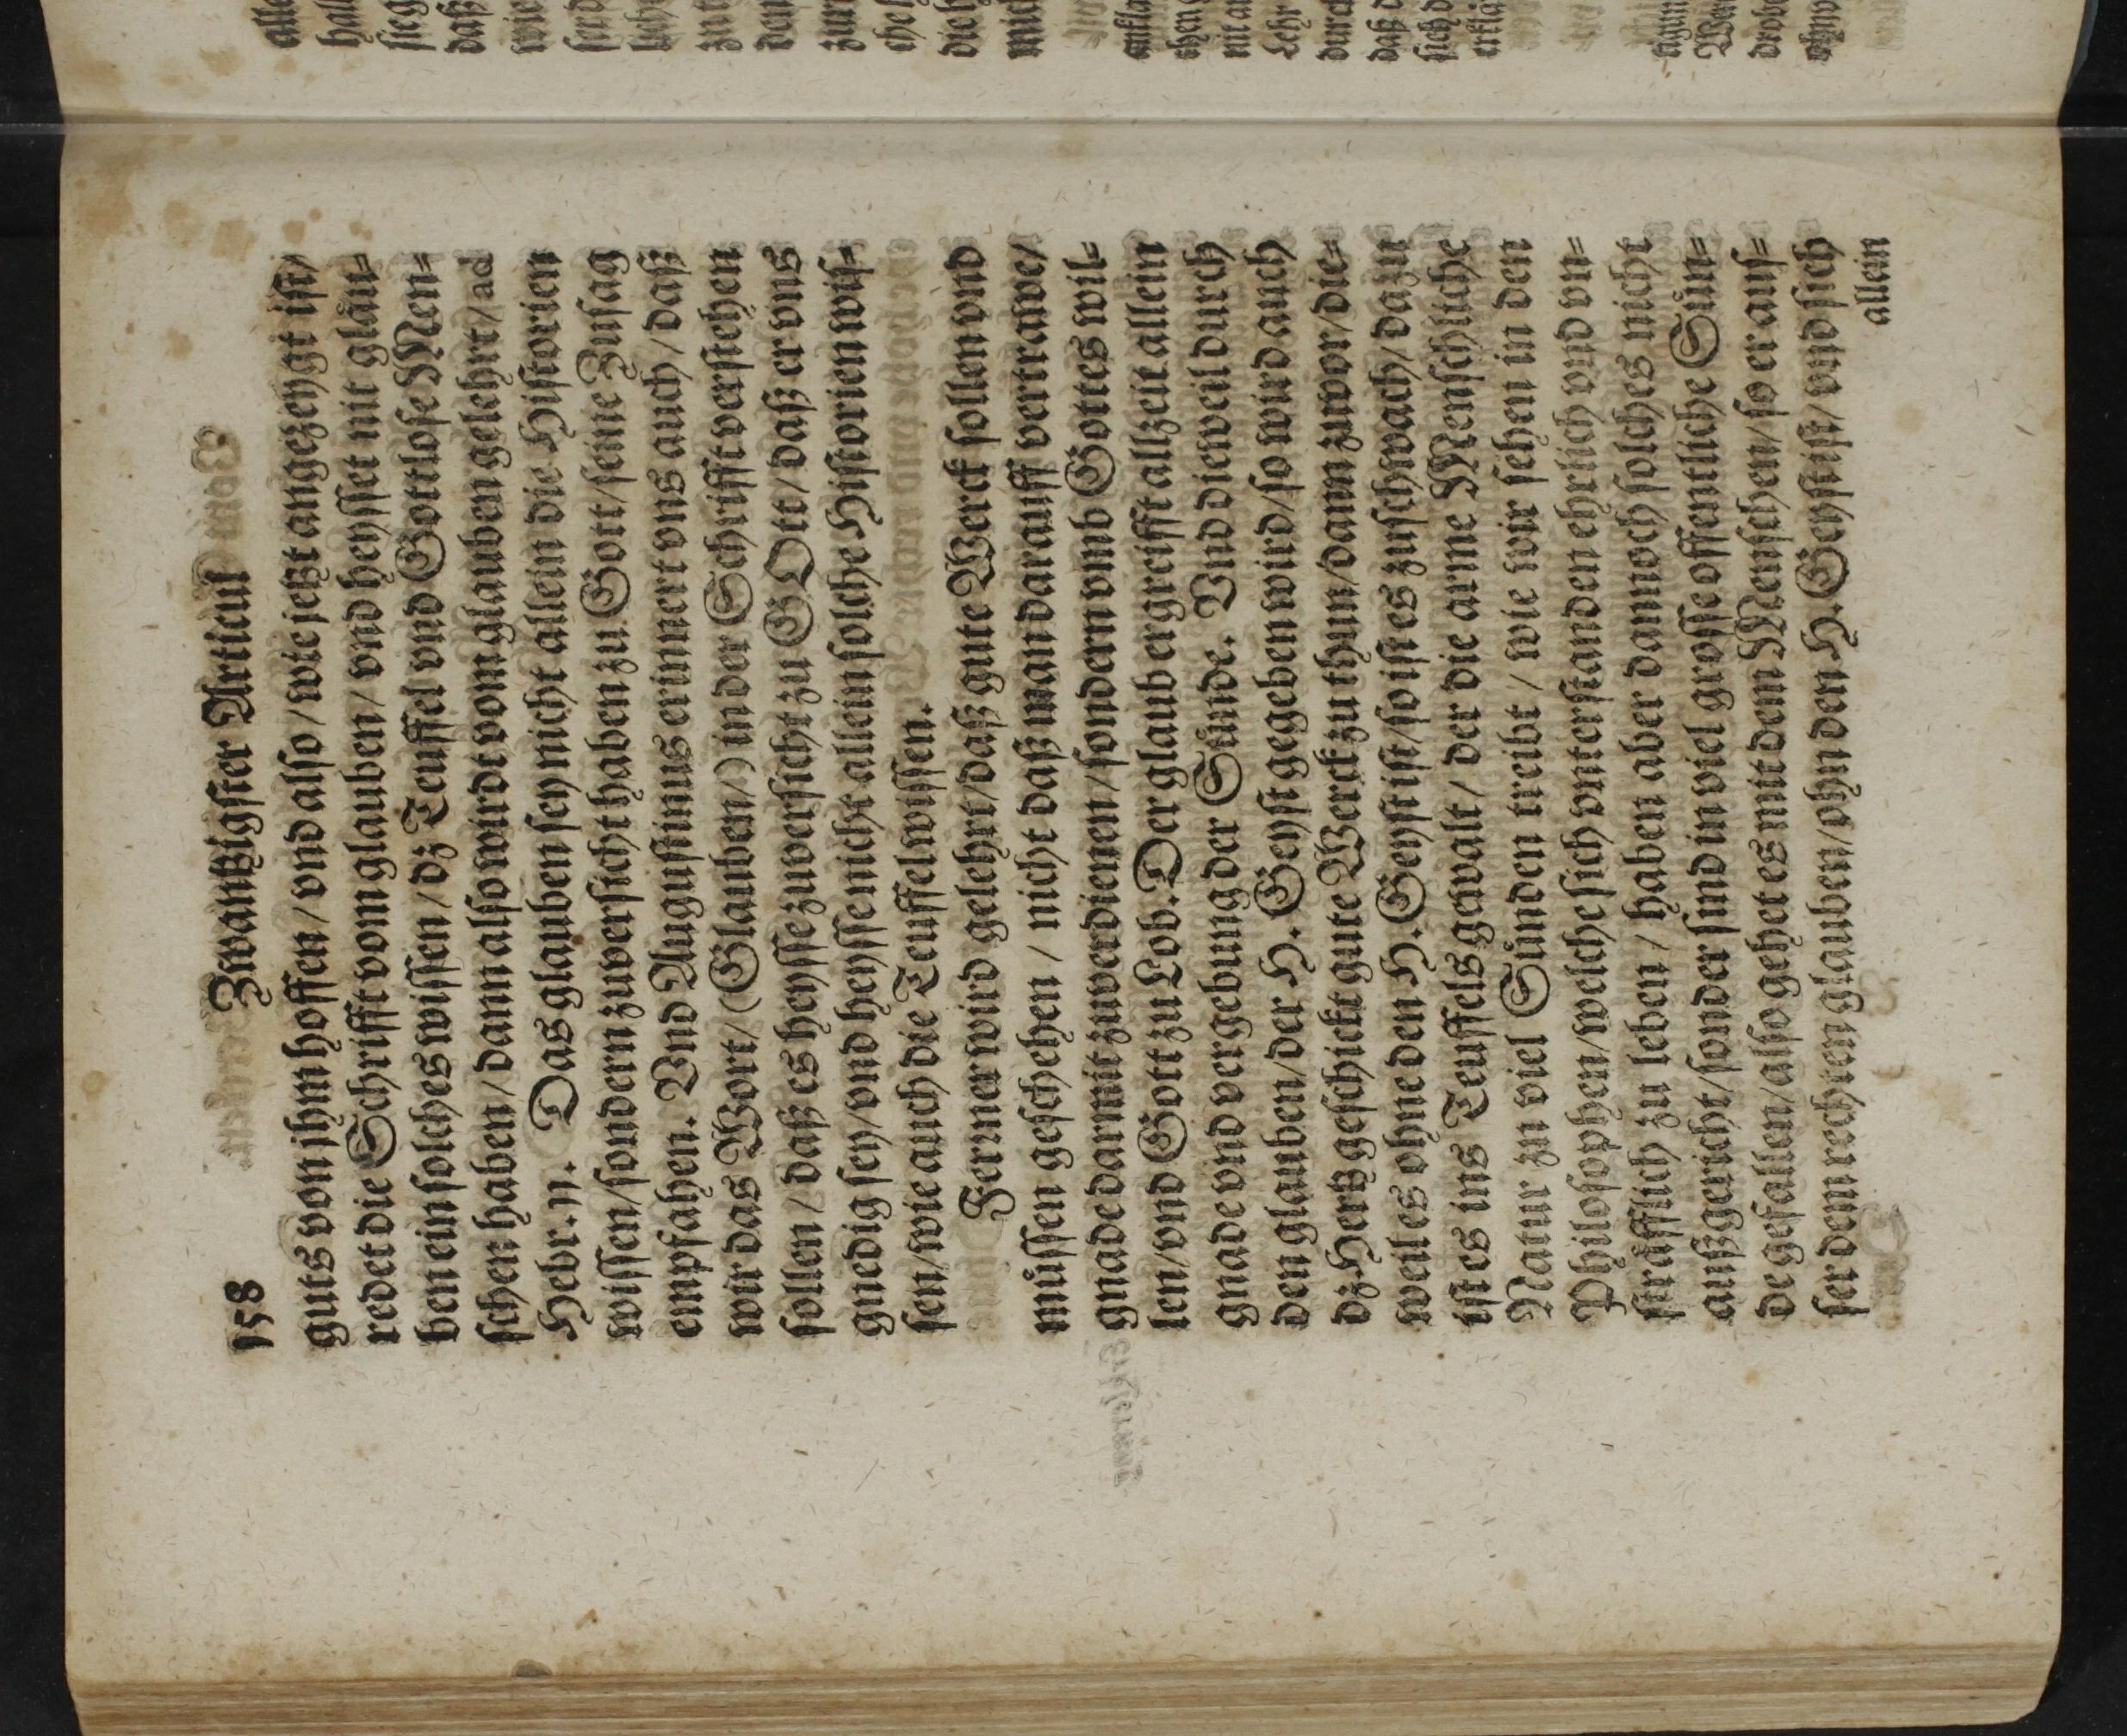 158 Zwantzigster Articul
guts von jhm hoffen / vnd also / wie jetzt angezeygt ist /
redet die Schrifft vom glauben / vnd heysset nit gläu=
ben ein solches wissen / dz Teuffel vnd Gottlose Men=
schen haben / dann also wirdt vom glauben gelehrt / ad
Hebr. 11. Das glauben sey nicht allein die Historien
wissen / sondern zuversicht haben zu Gott / seine Zusag
empfahen. Vnd Augustinus erinnert vns auch / daß
wir das Wort / (Glauben /) in der Schrifft verstehen
sollen / daß es heysse zuversicht zu GOtt / daß er vns
gnedig sey / vnd heysse nicht allein solche Historien wis=
sen / wie auch die Teuffel wissen.
Ferrner wird gelehrt / daß gute Werck sollen vnd
müssen geschehen / nicht daß man darauff vertrawe /
gnade darmit zuverdienen / sondern vmb Gottes wil=
len / vnd Gott zu Lob. Der glaub ergreifft allzeit allein
gnade vnd vergebung der Sünde. Vnd dieweil durch
den glauben / der H. Geyst gegeben wird / so wird auch
dz Hertz geschickt gute Werck zu thun / dann zuvor / die=
weil es ohne den H. Geyst ist / so ist es zu schwach / dazu
ist es ins Teuffels gewalt / der die arme Menschliche
Natur zu viel Sünden treibt / wie wir sehen in den
Philosophen / welche sich vnterstanden ehrlich vnd vn=
sträfflich zu leben / haben aber dannoch solches nicht
außgericht / sonder sind in viel grosse offentliche Sün=
de gefallen / also gehet es mit dem Menschen / so er aus=
ser dem rechten glauben / ohn den H. Geyst ist / vnd sich
allein